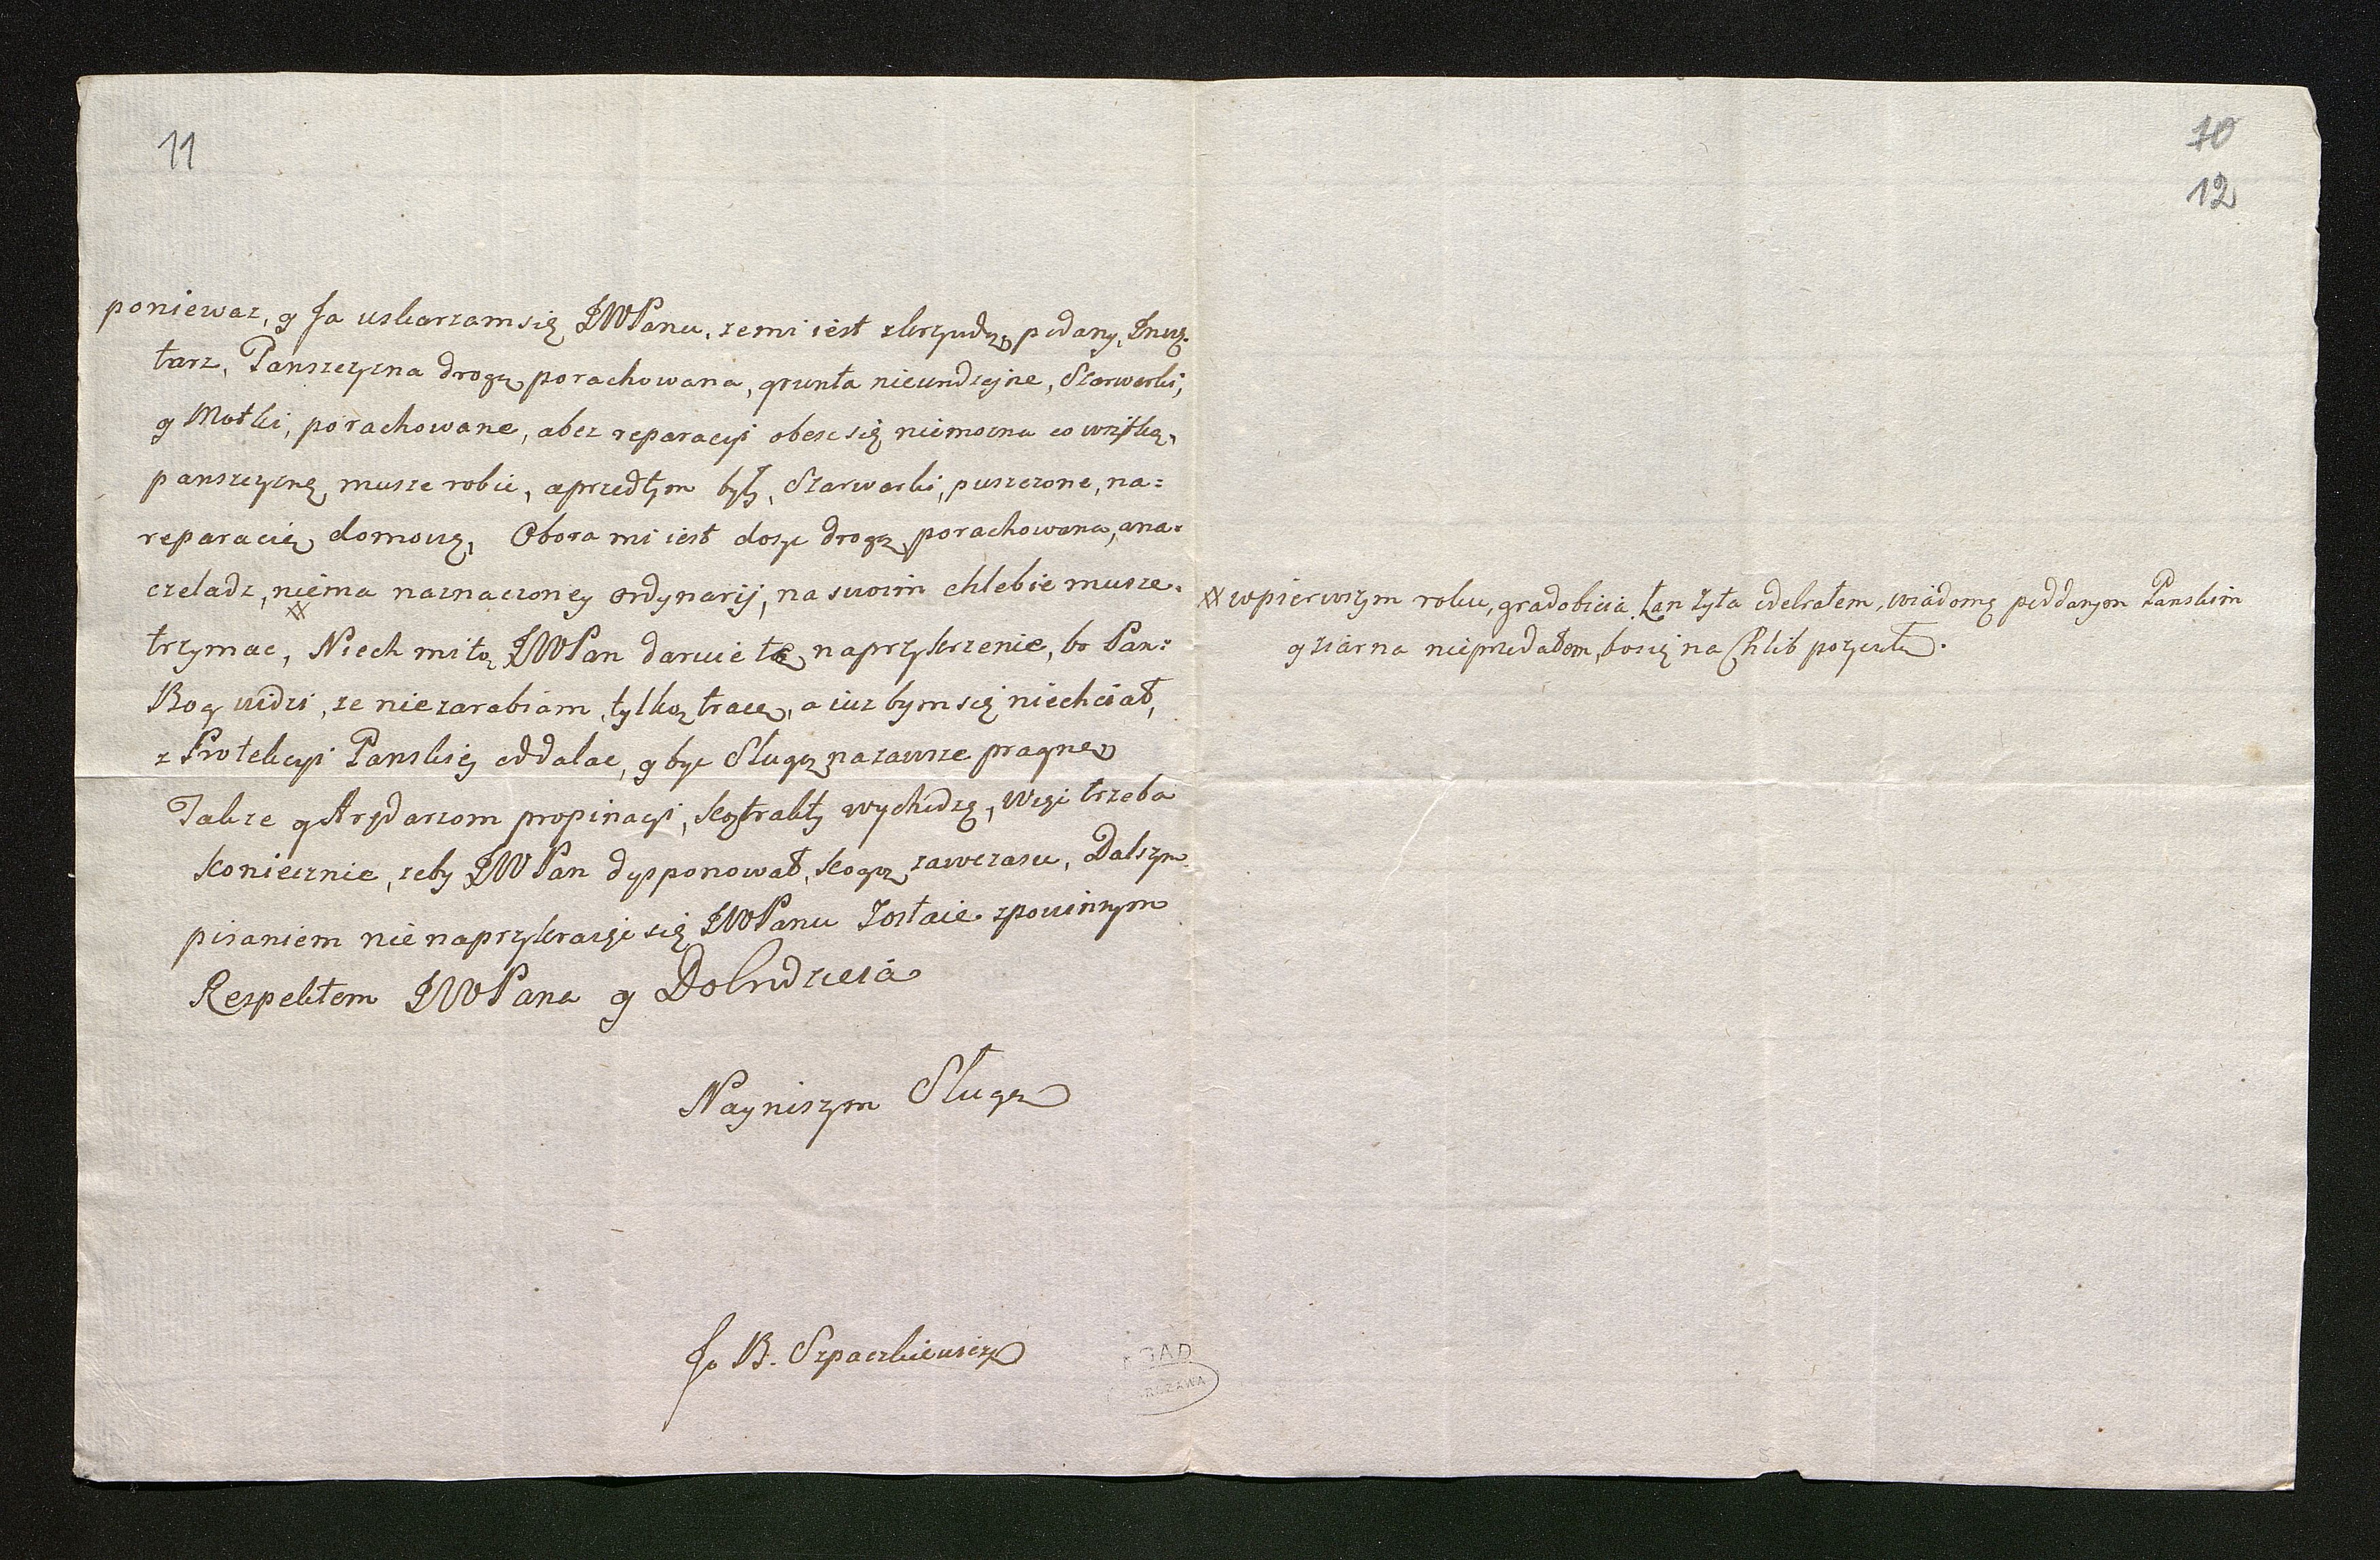 11
10
12
poniewaz, y Ja uskarzam się JWPanu, ze mi iest z krzywdą podany, Inwę-
tarz, Panszczyzna drogo porachowana, grunta nieurodzajne, Szarwarki,
y Motki, porachowane, a bez reparacyi obesc się niemozna co wszstką,
panszczyznę musze robic, a przedtym byly, Szarwarki, puszczone, na=
reparacię domową, Obora mi iest dosyc drogo porachowana, a na=
czeladz, niema naznaczoney ordynaryi, na swoim chlebie musze=
trzymac, Niech mi to JWPan daruie te naprzykrzenie, bo Pan=
Bog widzi, ze niezarabiam, tylko tracę, a iuz bym się niechciał,
z Protekcyi Panskiey oddalac, y byc Sługą na zawsze pragnę
Takze y Arędarzom propinacyi, kontrakty wychodzą, więc trzeba
koniecznie, zeby JWPan dysponował, kogo zawczasu, Dalszym
pisaniem nie naprzykraiąc się JWPanu Zostaie z powinnym
Respektem JWPana y Dobrodzieia
Nayniszym Sługą
Jo B. Szpaczkiewicz
※ w pierwszym roku, gradobicia Łan Zyta odebrałem, wiadomo poddanym Panskim
y ziarna nieprzedałem, bo się na Chlib pozyczało.
AGAD
WARSZAWA